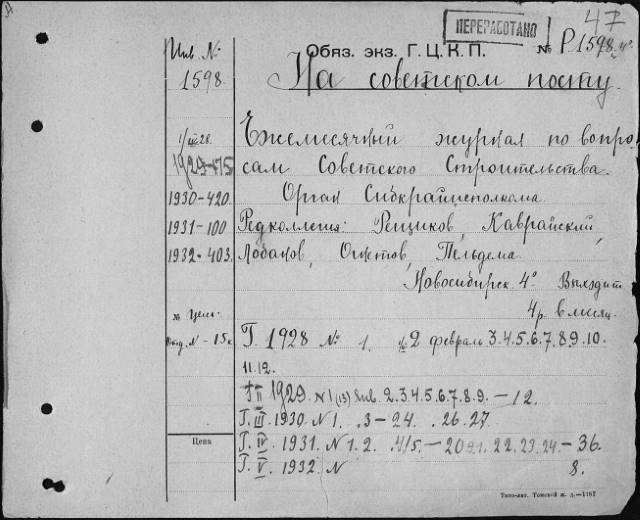 47
ПЕРЕРАБОТАНО
Инв. № Обяз. экз. Г.Ц.К.П. № Р1598. 4°
1598 На советском посту.
1/III 28. Ежемесячный журнал по вопро-
1929-415 сам Советского Строительства.
1930-420. Орган Сибкрайисполкома.
1931-100 Редколлегия: Ренциков, Каврайский,
1932-403. Лобанов, Ожетов, Гельдема
Новосибирск 4° Выходит
4 р. в месяц.
№ Цель:
№ - 15 к. Г. 1928 № 1. №2 февраль 3.4.5.6.7.8.9.10.
11.12.
Г. II 1929. N 1 (13) янв. 2.3.4.5.6.7.8.9. — 12.
Г. III 1930. N 1. .3 — 24. .26.27.
Цена Г. IV 1931. N 1.2. .4/5. — 20 21. 22.23.24. — 36.
Г. V. 1932. N 8.
Типо-лит. Томской ж. д.—1187